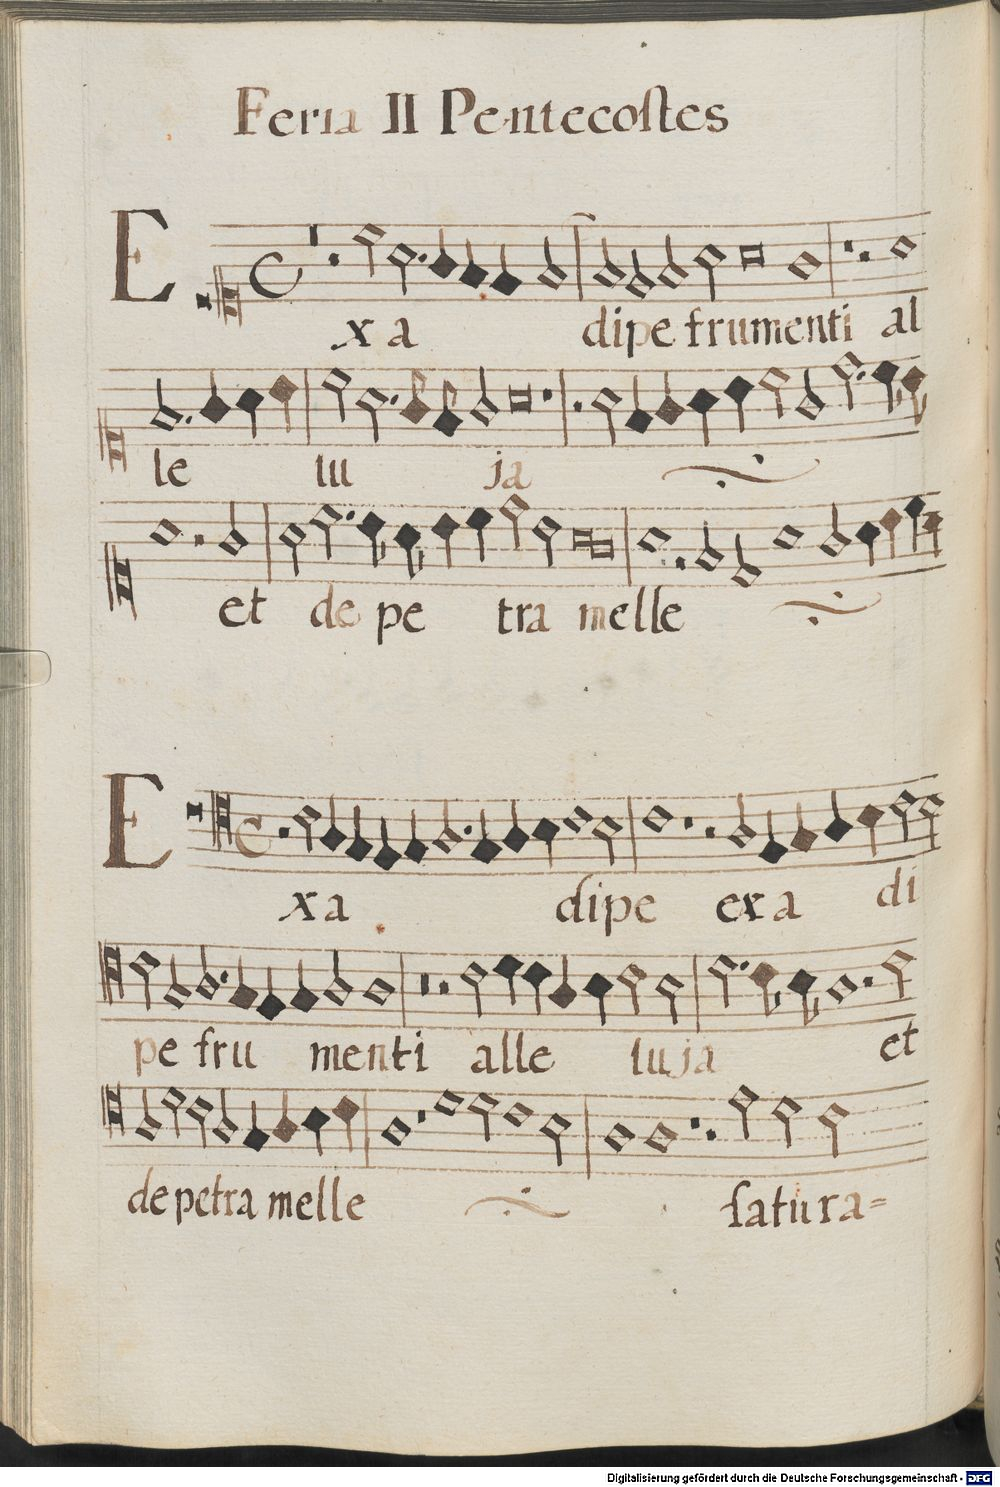 Feria II Pentecoſtes
E
xa dipe frumenti al
le lu ja
et de pe tra melle
E
xa dipe exa di
pe fru menti alle luja et
de petra melle ſatura=
Digitalisierung gefördert durch die Deutsche Forschungsgemeinschaft - DFG